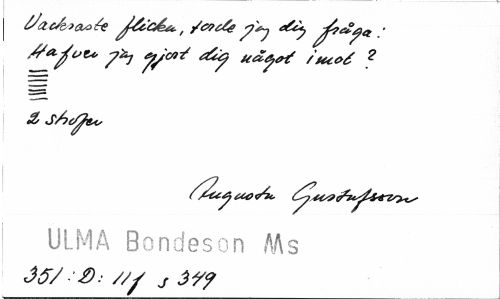 Vackraste flicka, torde jag dig fråga:
Hafver jag gjort dig något imot?
2 strofer
Augusta Gustafsson
ULMA Bondeson Ms
351:D: 11f s 349